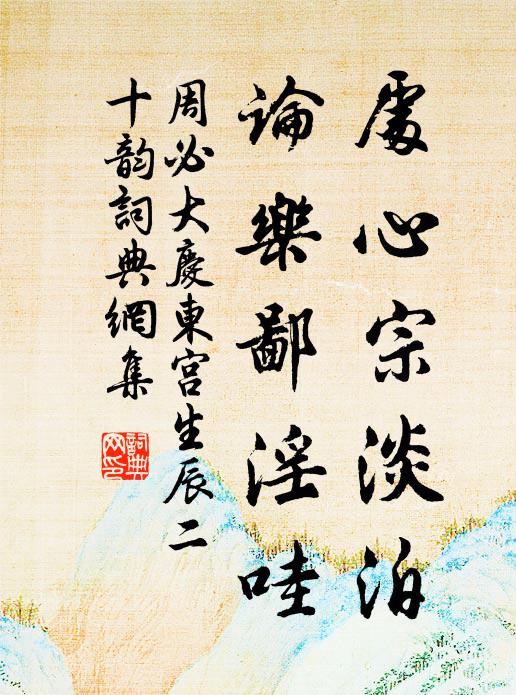 處心宗淡泊
論樂鄙淫哇
周必大慶東宮生辰二
十韵詞典網集
詞典網印